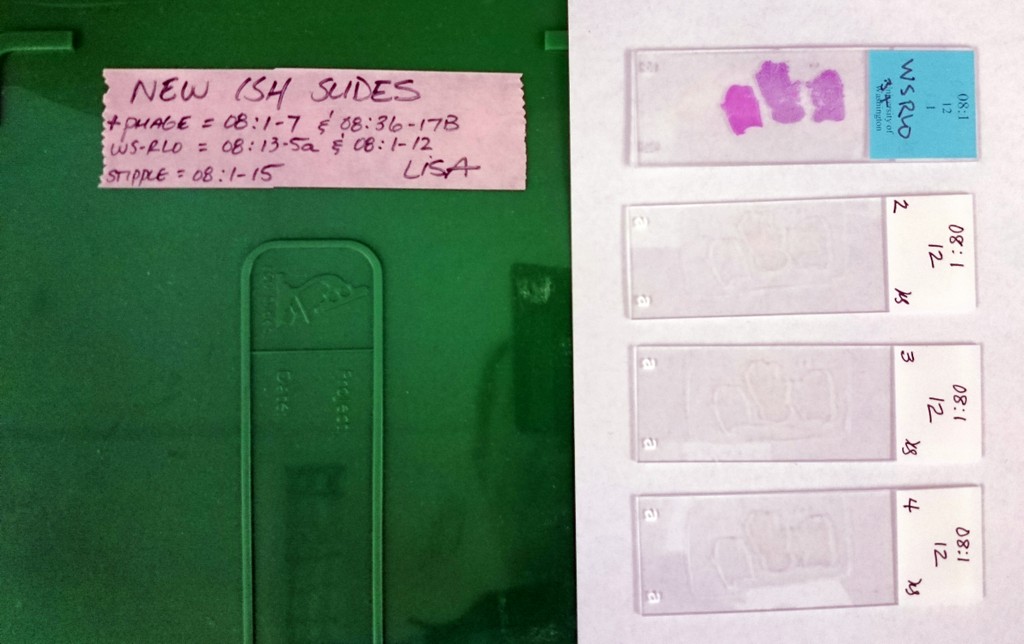 NEW ISH SLIDES
+PHAGE = 08:1-7 & 08:36-17B
WS-RLO = 08:13-5a & 08:1-12
STIPPLE = 08:1-15
LISA
Project
Date
08:1
12
1
University of
Washington
WSRLO
2
08:1
12
a
a
3
08:1
12
a
a
4
08:1
12
a
a